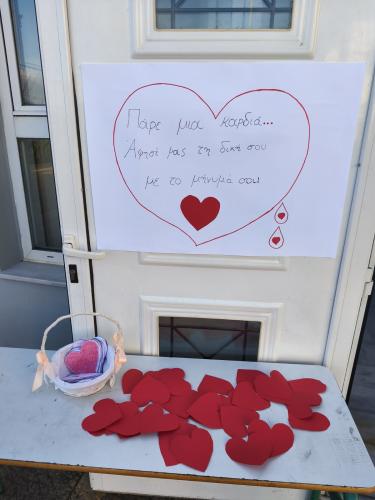 Πάρε μια καρδιά...
Άφησέ μας τη δική σου
με το μήνυμά σου